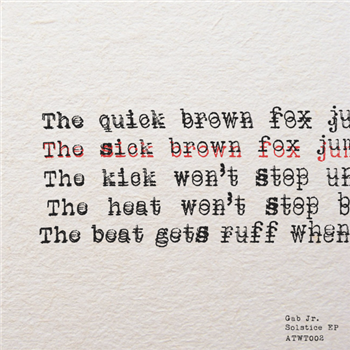 The quick brown fox ju
The sick brown fox jum
The kick won't stop un
The heat won't stop b
The beat gets ruff when
Gab Jr.
Solstice EP
ATWT002